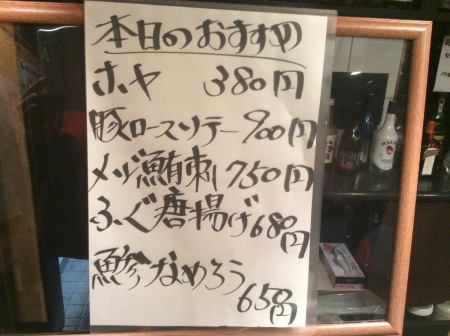 本日のおすすめ
ホヤ 380円
豚ロースソテー 900円
メジ鮪刺 750円
ふぐ唐揚げ 680円
鯵なめろう 650円